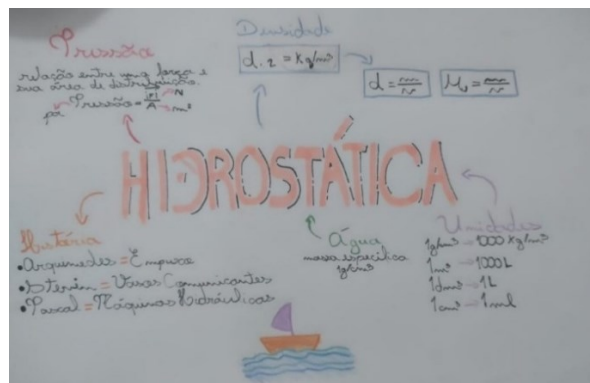 Pressão
relação entre uma força e
sua área de distribuição.
Pressão = |F| N
pa A m²
Densidade
d. = Kg/m³
d = m/v
μ = m/v
HIDROSTÁTICA
História
•Arquimedes = Empuxo
•Stevin = Vasos Comunicantes
•Pascal = Máquinas Hidráulicas
Água
massa específica
1g/cm³
Unidades
1g/cm³ → 1000 Kg/m³
1m³ → 1000L
1dm³ → 1L
1cm³ → 1ml